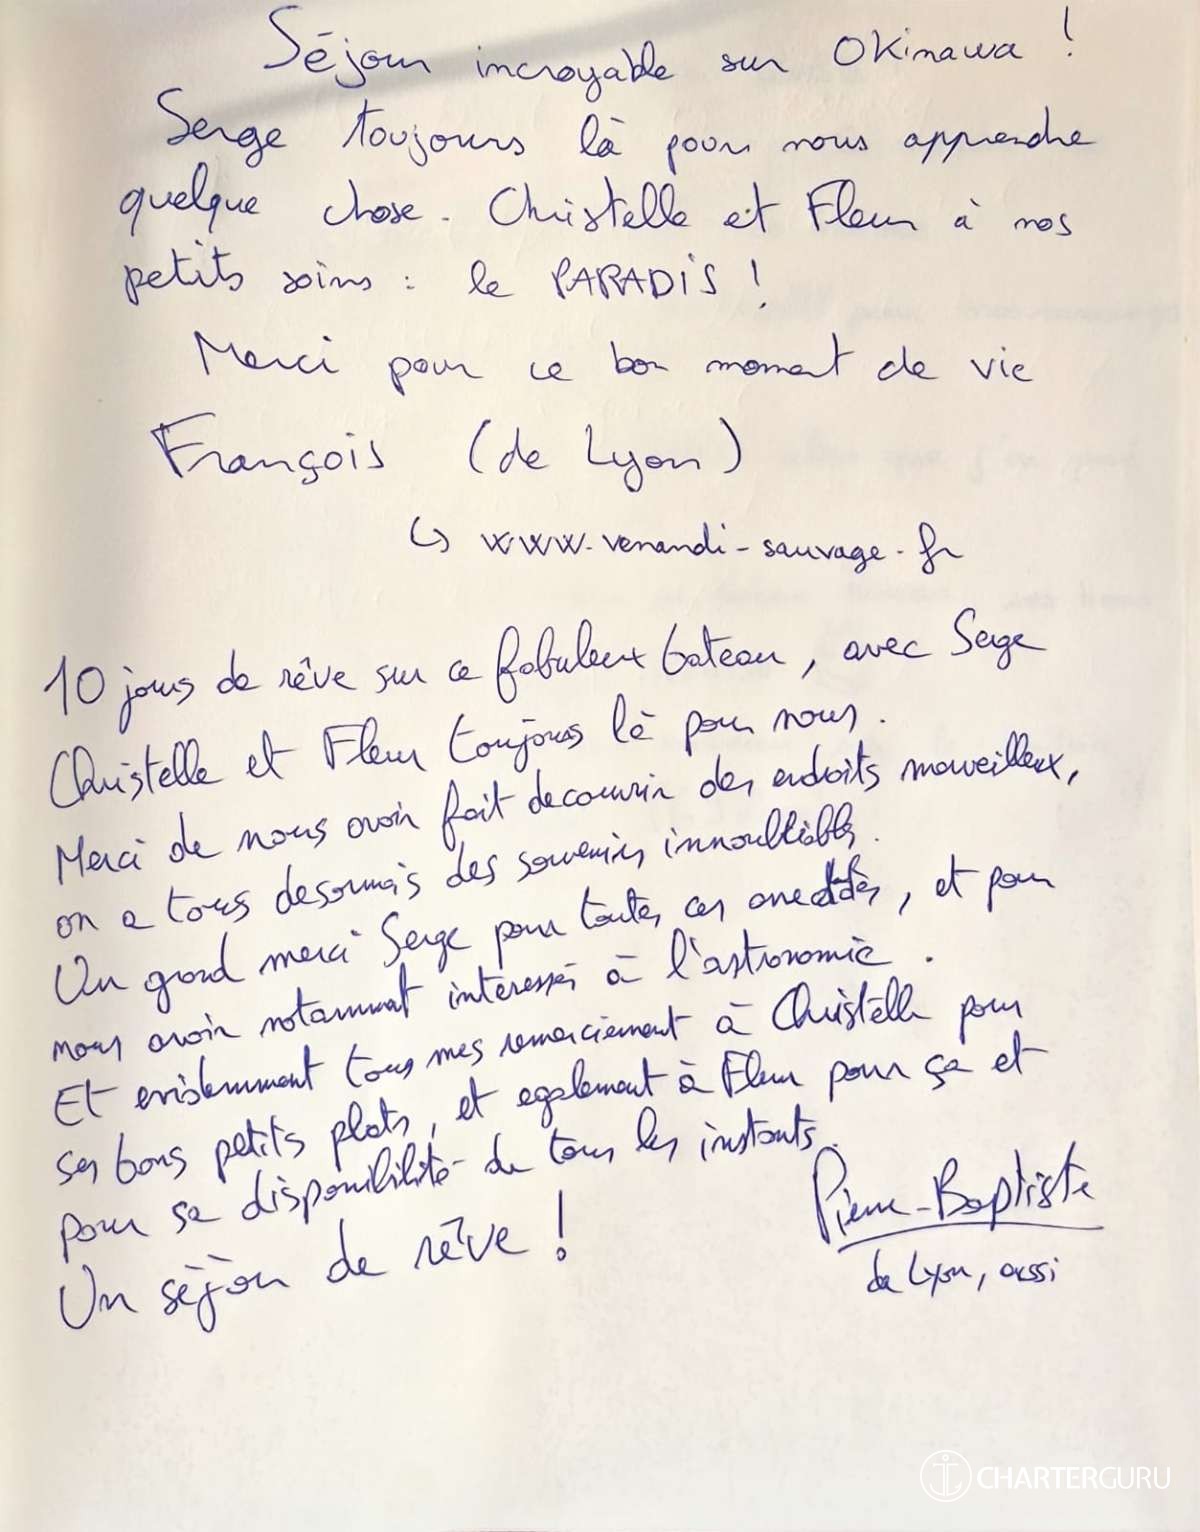 Séjour incroyable sur Okinawa !
Serge toujours là pour nous apprendre
quelque chose. Christelle et Fleur à nos
petits soins : le PARADIS !
Merci pour ce bon moment de vie
François (de Lyon)
↪ www.venandi-sauvage.fr
10 jours de rêve sur ce fabuleux bateau, avec Serge
Christelle et Fleur toujours là pour nous.
Merci de nous avoir fait decouvrir des endroits merveilleux,
on a tous desormais des souvenirs innoubliables.
Un grand merci Serge pour toutes ces anecdotes, et pour
nous avoir notamment interessés à l'astronomie.
Et evidemment tous mes remerciement à Christelle pour
ses bons petits plats, et egalement à Fleur pour ça et
pour sa disponibilité de tous les instants.
Un séjour de rêve !
Pierre-Baptiste
de Lyon, aussi
CHARTERGURU